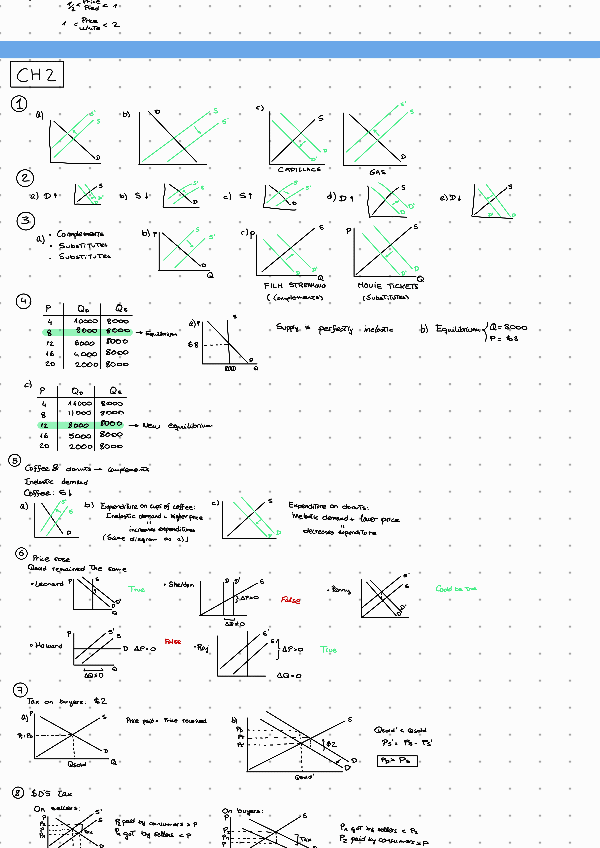 1/2 < Price Red < 1
1 < Price White < 2
CH2
1
a) S' S D
b) D S S'
c) S D D' CADILLACS
S' S D GAS
2
a) D↑ b) S↓ c) S↑ d) D↑ e) D↓
3
a) • Complements
• Substitutes
• Substitutes
b) P S S' D Q
c) P S D' D FILM STREAMING (Complements)
P S D D' Q MOVIE TICKETS (Substitutes)
4
P QD QS
4 10000 8000
8 8000 8000 → Equilibrium
12 6000 8000
16 4000 8000
20 2000 8000
a) P S $8 8000 D Q
Supply is perfectly inelastic
b) Equilibrium { Q = 8,000
P = $8
c)
P QD QS
4 8000
8 11000 8000
12 8000 8000 → New equilibrium
16 5000 8000
20 2000 8000
5
Coffee & donuts → complements
Inelastic demand
Coffee: S↓
a) S D
b) Expenditure on cups of coffee:
Inelastic demand + higher price
=
increases expenditures
(Same diagram as a))
c) S D
Expenditure on donuts:
demand + lower price
decreases expenditure
6
Price rose
Quad remained the same
• Leonard P S D D' Q True
• Sheldon D D' S ΔP>0 ΔQ≠0 False
• Penny S' S D D' Could be true
• Howard P S' S D ΔP=0 ΔQ≠0 False
• Raj S' S ΔP>0 ΔQ=0 True
7
Tax on buyers: $2
a) P S D Qsold Q
Price paid = Price received
b) S $2 D D' Qsold'
Qsold' < Qsold
8 $0.5 tax
On sellers: S' S tax
P2 paid by consumers > P
P1 got by sellers < P
On buyers: P S Tax
P1 got by sellers < P2
P2 paid by consumers > P